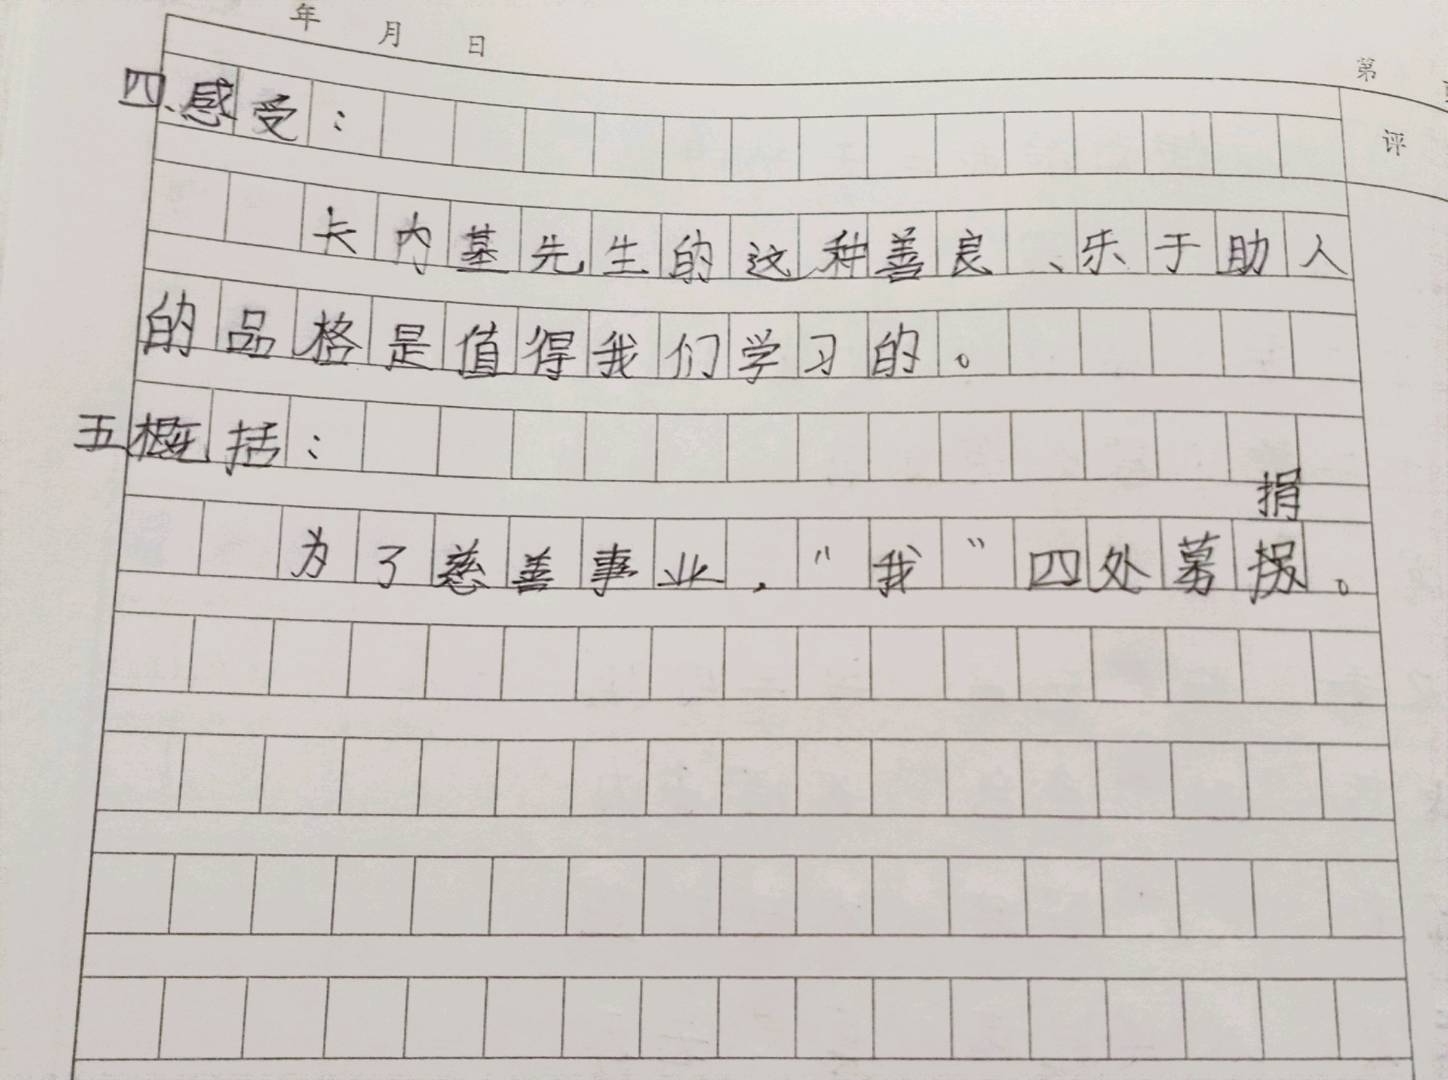 年 月 日
第
评
四、感受：
卡内基先生的这种善良、乐于助人
的品格是值得我们学习的。
五概括：
捐
为了慈善事业，“我”四处募拐。